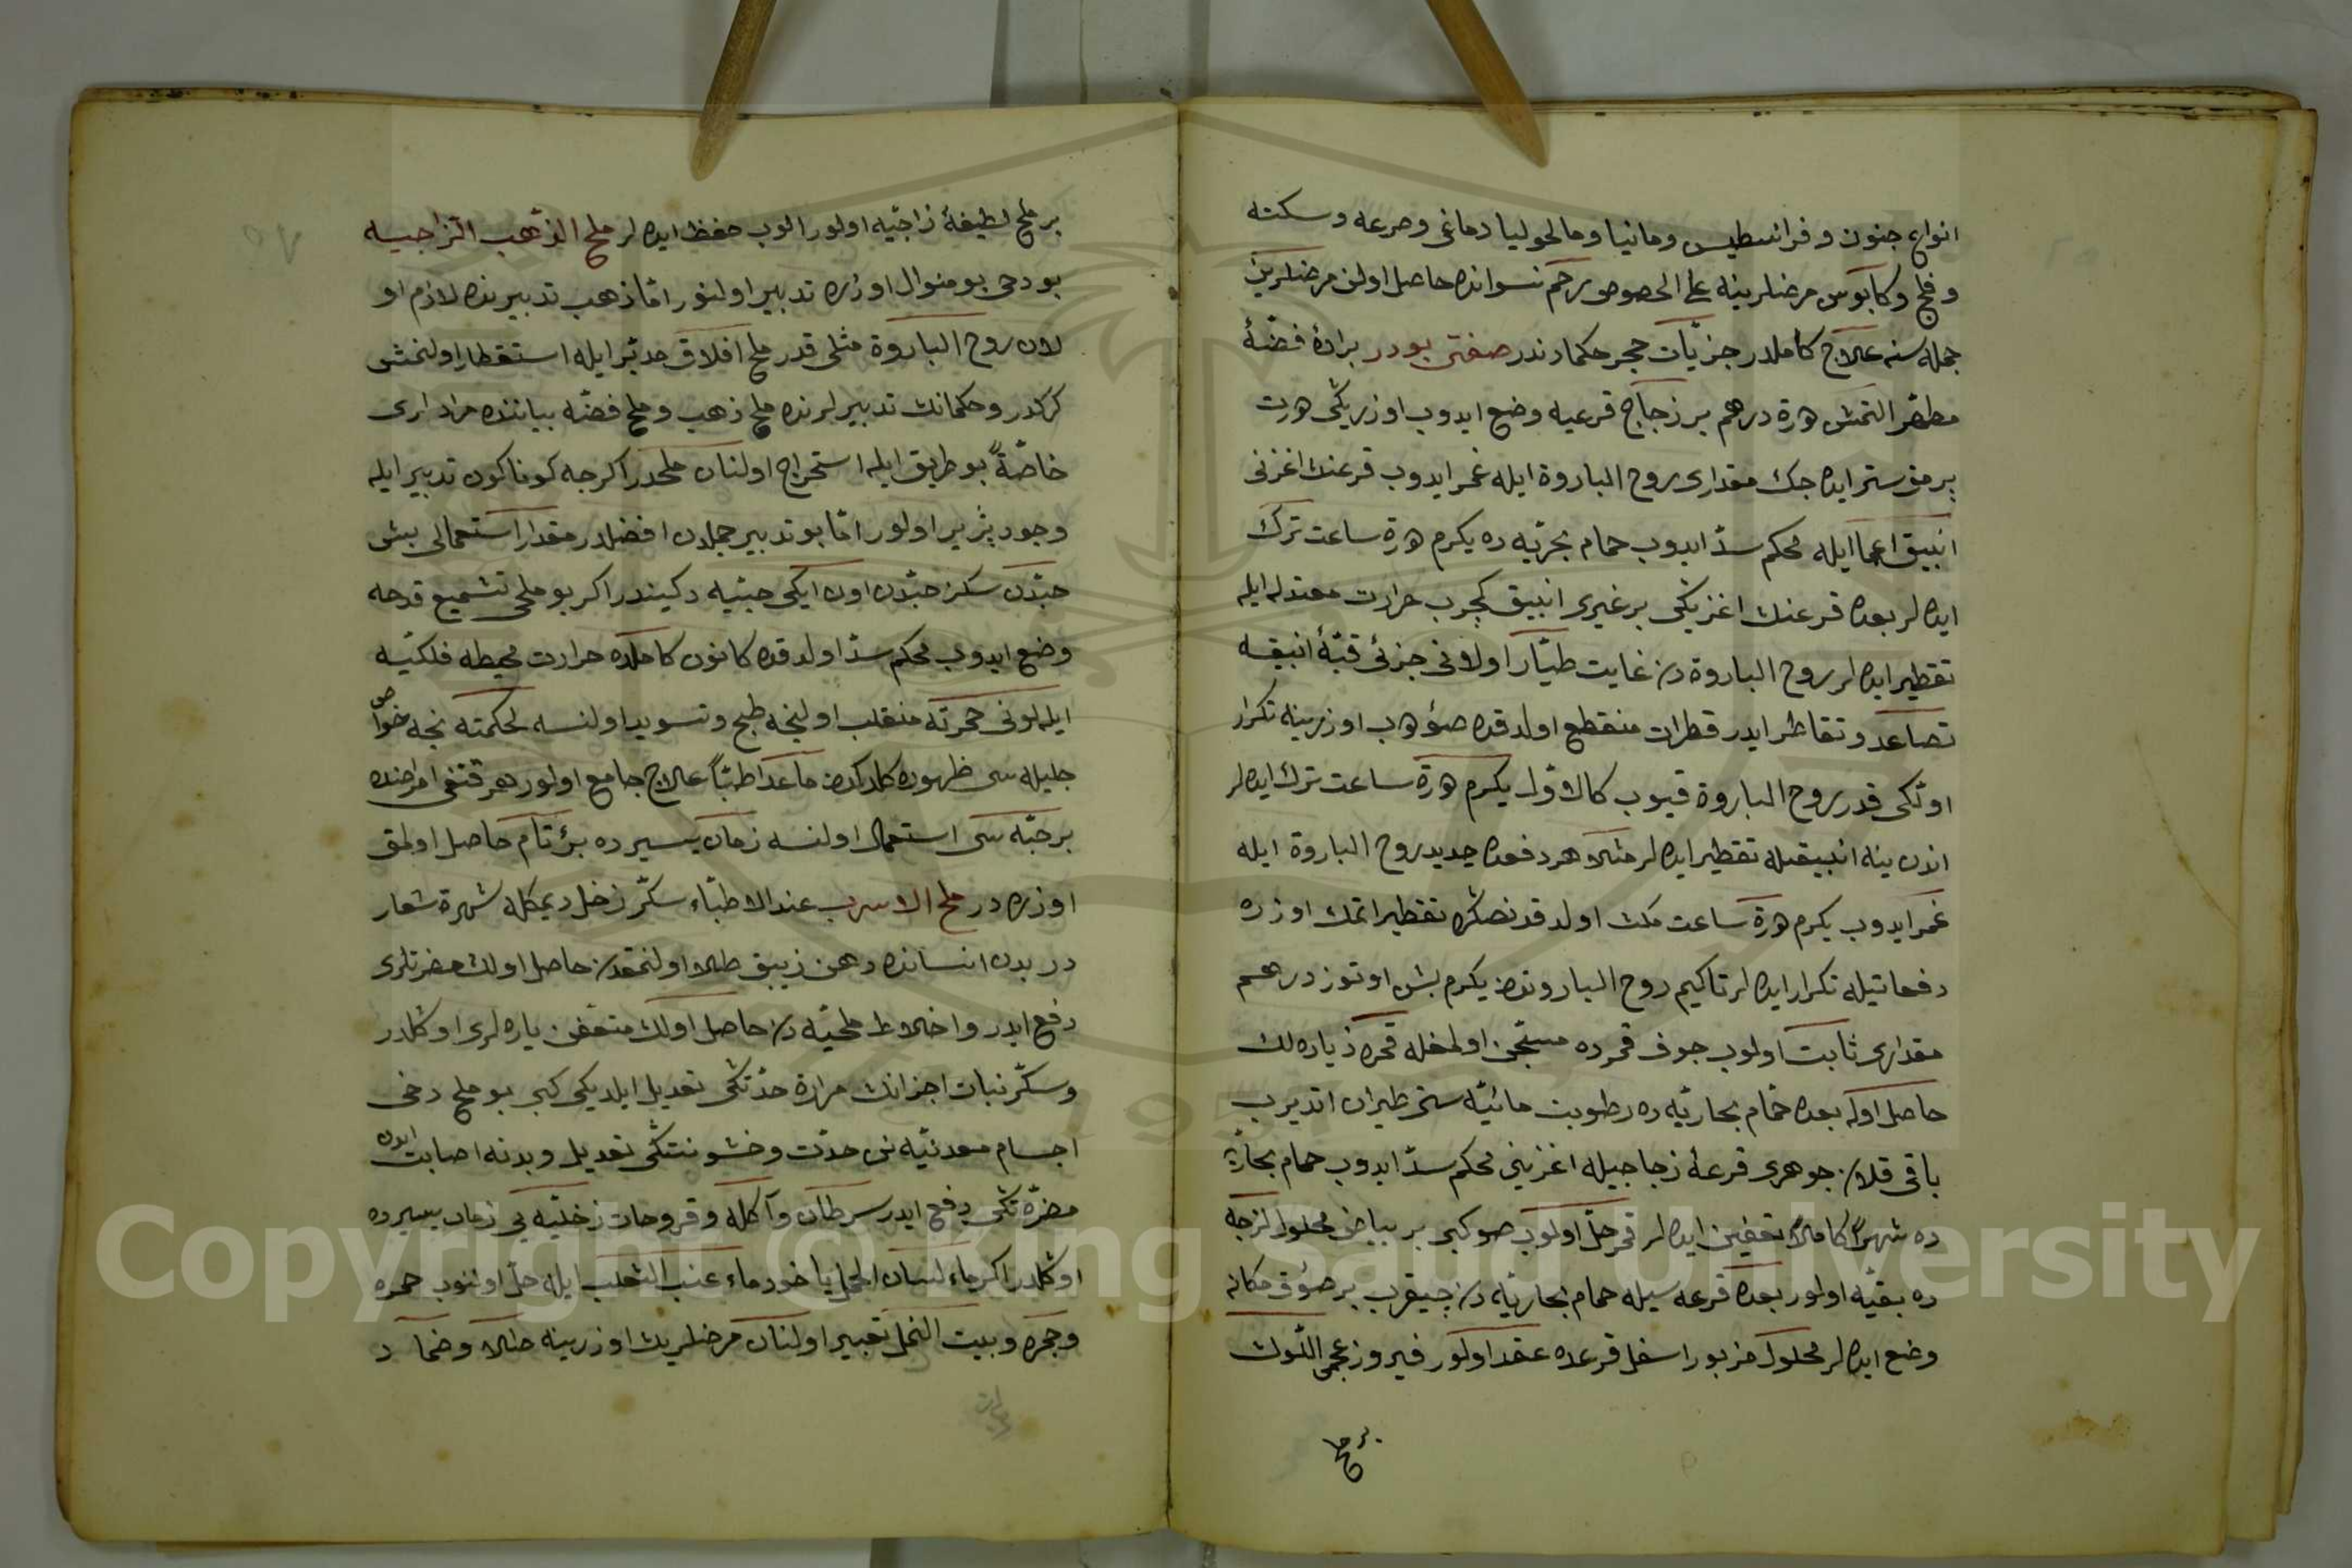 انواع جنون و فرانسطیس ومانیا ومالحولیا دماغی وصرعه وسكته
وفلج وكابوس مرضلرینه علی الخصوص رحم نسوانده حاصل اولن مرضلرین
جمله سنه علاج كاملدر جزئیات حجر حكمادندر صفتی بودر برادهٔ فضّهٔ
مطهّر التمش درهم بر زجاج قرعیه وضع ایدوب اوزریكی
برمق ستر ایده جك مقداری روح الباروة ایله غمر ایدوب قرعنك اغزنی
انبیق اعما ایله محكم سدّ ایدوب حمام بحریّه ده یكرم درة ساعت ترك
ایده لر بعده قرعنك اغزینكی بر غیری انبیق كچرب حرارت معتدله ایله
تقطیر ایده لر روح الباروة دن غایت طیّار اولانی جزئی قبّهٔ انبیقه
تصاعد و تقاطر ایدر قطرات منقطع اولدقده صؤدوب اوزرینه تكرار
اولكی قدر روح الباروة قیوب كالاوّل یكرم درة ساعت ترك ایده لر
اندن ینه انبیقله تقطیر ایده لر مثلا هر دفعه جدید روح الباروة ایله
غمر ایدوب یكرم درة ساعت مكث اولدقدنصكره تقطیر اتمك اوزره
دفعاتیله تكرار ایده لر تاكیم روح الباروتدن یكرم بش اوتوز درهم
مقداری ثابت اولوب جوف قمرده مستجن اولمغله قمره زیاده لك
حاصل اوله بعده حمّام بخاریّه ده رطوبت مائیّه سنی طیران اتدیرب
باقی قلان جوهری قرعهٔ زجاجیله اغزینی محكم سدّ ایدوب حمام بخاریّه
ده شهراً كاملاً تعفین ایده لر قمر حلّ اولوب صو كبی بر بیاض محلول لزجه
ده بقیّه اولور بعده قرعه سیله حمام بخاریّه دن چیقرب بر صؤق مكانه
وضع ایده لر محلول مزبور اسفل قرعده عقد اولور فیروز عجمی اللّون
بر ملح
بر ملح لطیفهٔ زاجیّه اولور الوب حفظ ایده لر ملح الذّهب الزاجیسه
بو دخی بو منوال اوزره تدبیر اولنور امّا ذهب تدبیرنده لازم او
لان روح الباروة مثلی قدر ملح افلاق مدبّر ایله استقطار اولنمش
كركدر وحكمانك تدبیرلرنده ملح ذهب وملح فضّه بیاننده مرادلری
خاصّةً بو طریق ایله استخراج اولنان ملحدر اكرجه كوناكون تدبیر ایله
وجود پذیر اولور امّا بو تدبیر جمله دن افضلدر مقدار استعمالی بش
حبّدن سكز حبّدن اون ایكی حبّیه دكیندر اكر بو ملحی تشمیع قدحه
وضع ایدوب محكم سدّ اولدقده كانون كاملده حرارت محیطه فلكیّه
ایله لونی حمرته منقلب اولنجه طبخ وتسوید اولنسه لحكمته نجه خواص
جلیله سی ظهوره كلدكدن ماعدا طبّاً علاج جامع اولور هر قنغی امراضنده
بر حبّه سی استعمال اولنسه زمان یسیرده برء تام حاصل اولمق
اوزره در ملح الاسرب عند الاطبّاء سكّر زحل دیمكله شهرة شعار
در بدن انسانده دهن زیبق طلا اولنمقدن حاصل اولان مضرتلری
دفع ایدر واخلاط ملحیّه دن حاصل اولان متعفن یاره لری اوكلدر
وسكّر نبات اجزانك مرارة حدّتكی تعدیل ایلدیكی كبی بو ملح دخی
اجسام معدنیّه نی حدّت وخشونتكی تعدیل وبدنه اصابت ایدن
مضرّتكی دفع ایدر سرطان وآكله وقروحات زحلیّه یی زمان یسیرده
اوكلدر اكر ماء لسان الحمل یا خود ماء عنب الثعلب ایله حلّ اولنوب حمره
وجمره وبیت النمل تعبیر اولنان مرضلریك اوزرینه طلا وضماد